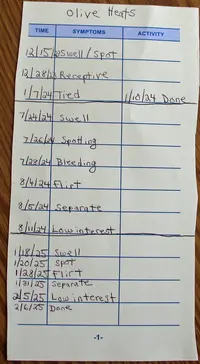 Olive Heats
TIME SYMPTOMS ACTIVITY
12/15/23 Swell/Spot
12/28/23 Receptive
1/7/24 Tied 1/10/24 Done
7/24/24 Swell
7/26/24 Spotting
7/28/24 Bleeding
8/4/24 Flirt
8/5/24 Separate
8/11/24 Low interest
1/18/25 Swell
1/20/25 Spot
1/28/25 Flirt
1/31/25 Separate
2/5/25 Low interest
2/6/25 Done
-1-